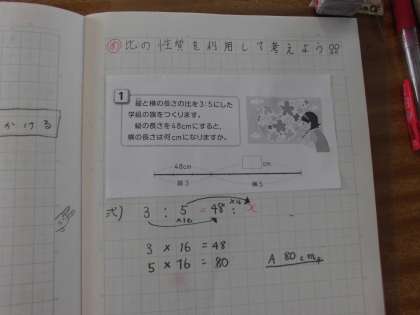 比の性質を利用して考えよう
1
縦と横の長さの比を3:5にした
学級の旗をつくります。
縦の長さを48cmにすると、
横の長さは何cmになりますか。
48cm
cm
縦3
横5
かける
式) 3 : 5 = 48 : x
×16
×16
3 × 16 = 48
5 × 16 = 80
A 80cm